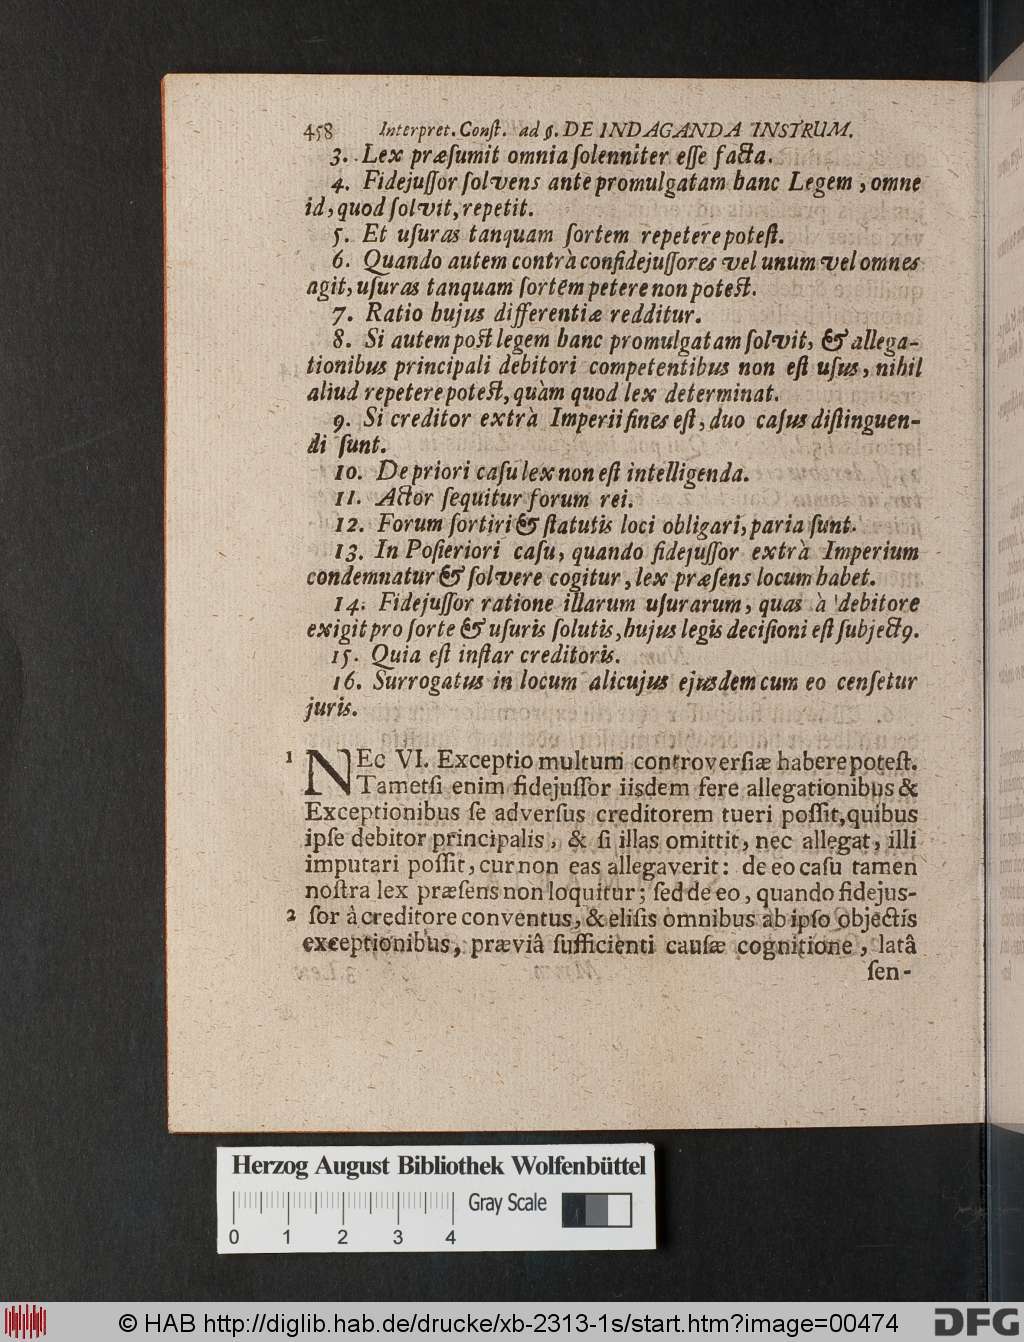 458 Interpret. Conſt. ad §. DE INDAGANDA INSTRUM.
3. Lex præſumit omnia ſolenniter eſſe facta.
4. Fidejuſſor ſolvens ante promulgatam hanc Legem, omne
id, quod ſolvit, repetit.
5. Et uſuras tanquam ſortem repetere poteſt.
6. Quando autem contrà confidejuſſores vel unum vel omnes
agit, uſuras tanquam ſortem petere non poteſt.
7. Ratio hujus differentiæ redditur.
8. Si autem poſt legem hanc promulgatam ſolvit, & allega-
tionibus principali debitori competentibus non eſt uſus, nihil
aliud repetere poteſt, quàm quod lex determinat.
9. Si creditor extrà Imperii fines eſt, duo caſus diſtinguen-
di ſunt.
10. De priori caſu lex non eſt intelligenda.
11. Actor ſequitur forum rei.
12. Forum ſortiri & ſtatutis loci obligari, paria ſunt.
13. In Poſieriori caſu, quando fidejuſſor extrà Imperium
condemnatur & ſolvere cogitur, lex præſens locum habet.
14. Fidejuſſor ratione illarum uſurarum, quas à debitore
exigit pro ſorte & uſuris ſolutis, hujus legis deciſioni eſt ſubjectꝰ.
15. Quia eſt inſtar creditoris.
16. Surrogatus in locum alicujus ejusdem cum eo cenſetur
juris.
1 NEc VI. Exceptio multum controverſiæ habere poteſt.
Tametſi enim fidejuſſor iisdem fere allegationibus &
Exceptionibus ſe adverſus creditorem tueri poſſit, quibus
ipſe debitor principalis, & ſi illas omittit, nec allegat, illi
imputari poſſit, cur non eas allegaverit: de eo caſu tamen
noſtra lex præſens non loquitur; ſed de eo, quando fidejus-
2 ſor â creditore conventus, & eliſis omnibus ab ipſo objectis
exceptionibus, præviâ ſufficienti cauſæ cognitione, latâ
ſen-
Herzog August Bibliothek Wolfenbüttel
Gray Scale
0 1 2 3 4
© HAB http://diglib.hab.de/drucke/xb-2313-1s/start.htm?image=00474
DFG